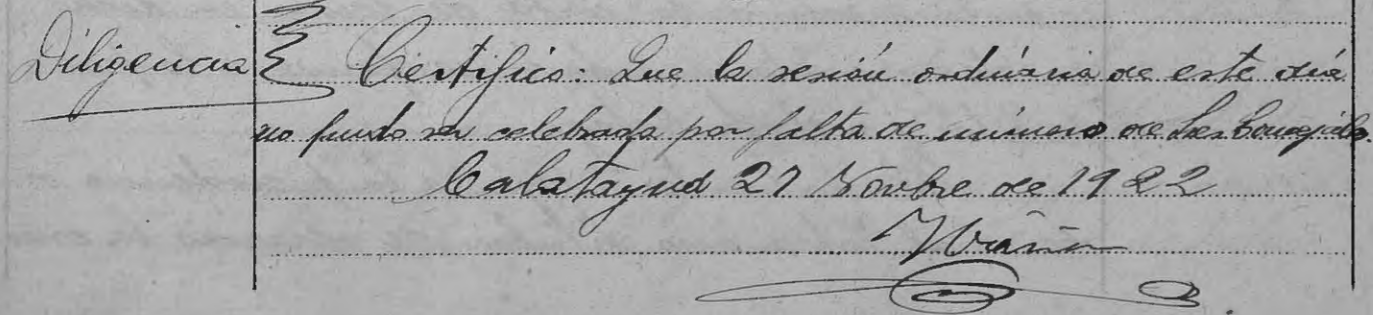 Diligencia Certifico: Que la sesión ordinaria de este día
no pudo ser celebrada por falta de número de Sres Concejales.
Calatayud 27 Novbre de 1922